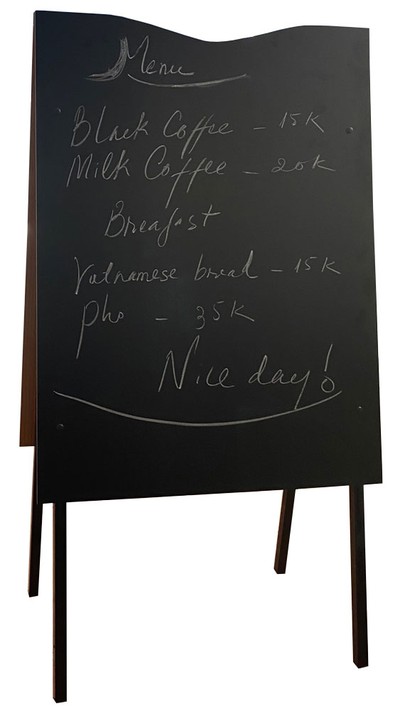 Menu
Black Coffee - 15K
Milk Coffee - 20K
Breafast
Vietnamese bread - 15K
pho - 35K
Nice day!